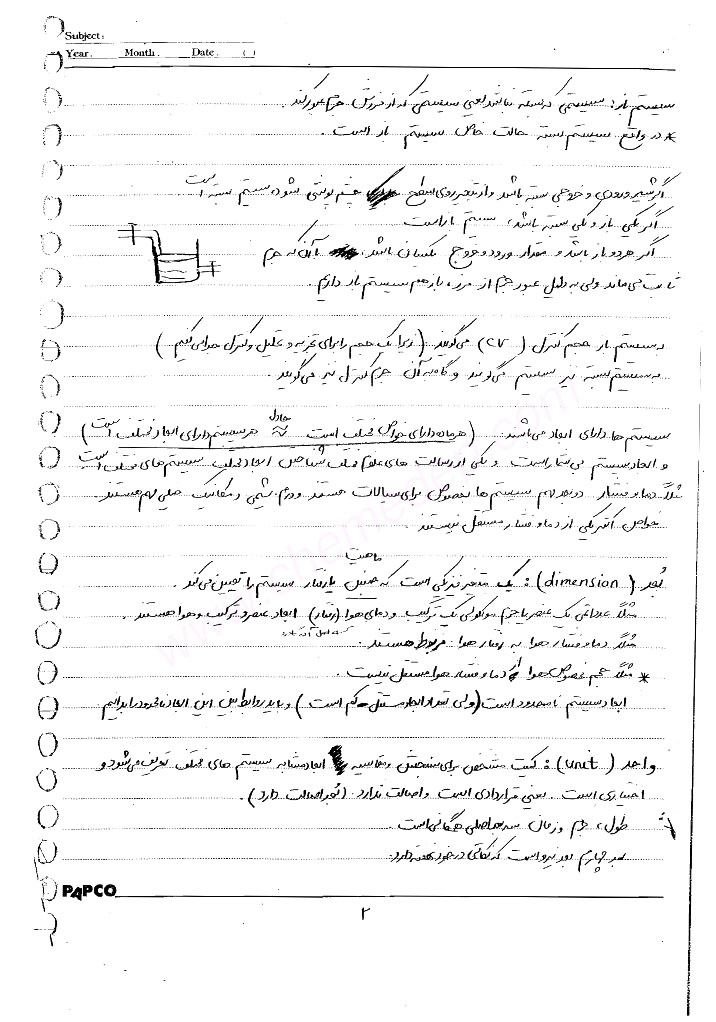 Subject:
Year. Month. Date. ( )
سیستم باز: سیستمی که بسته نباشد یعنی سیستمی که از مرزش جرم عبور کند.
* در واقع سیستم بسته حالت خاص سیستم باز است.
اگر شیر ورودی و خروجی بسته باشد و از تبخیر روی سطح چشم پوشی شود، سیستم بسته است
اگر یکی باز و یکی بسته باشد، سیستم باز است
اگر هر دو باز باشد و مقدار ورود و خروج یکسان باشد، با آن که جرم
ثابت می ماند ولی به دلیل عبور جرم از مرز، باز هم سیستم باز داریم.
به سیستم باز حجم کنترل (CV) می گویند. (زیرا یک حجم را برای تجزیه و تحلیل و کنترل جدا می کنیم)
به سیستم بسته نیز سیستم می گویند و گاه به آن جرم کنترل نیز می گویند.
سیستم ها دارای ابعاد می باشند. (هر ماده دارای خواص مختلف است ≈ معادل هر سیستم دارای ابعاد مختلف است)
و ابعاد سیستم بی شمار است و یکی از رسالت های علوم مختلف شناختن ابعاد مختلف سیستم های مختلف است
مثلاً دما و فشار دو بعد مهم سیستم ها بخصوص برای سیالات هستند و در شیمی و مکانیک خیلی مهم هستند.
خواص الکتریکی از دما و فشار مستقل نیستند.
بُعد (dimension): یک متغیر فیزیکی است که جنبش ماهیت یا رفتار سیستم را تعیین می کند.
مثلاً عدد اتمی یک عنصر یا جرم مولکولی یک ترکیب و دمای هوا (رفتار) ابعاد عنصر و ترکیب و هوا هستند.
مثلاً دما و فشار هوا به رفتار هوا مربوط هستند.
* مثلاً حجم مخصوص هوا از دما و فشار هوا مستقل نیست.
ابعاد سیستم نامحدود است (ولی تعداد ابعاد مستقل کم است) و باید روابط بین این ابعاد نامحدود را بدانیم
واحد (unit): کمیت مشخص برای سنجش و مقایسه ابعاد مشابه سیستم های مختلف تعریف می شود و
اختیاری است. یعنی قراردادی است و اصالت ندارد. (بُعد اصالت دارد).
طول، جرم و زمان سه بعد اصلی همگانی است.
بعد چهارم بعد نیرو است که نکاتی در خود نهفته دارد.
PAPCO
۲